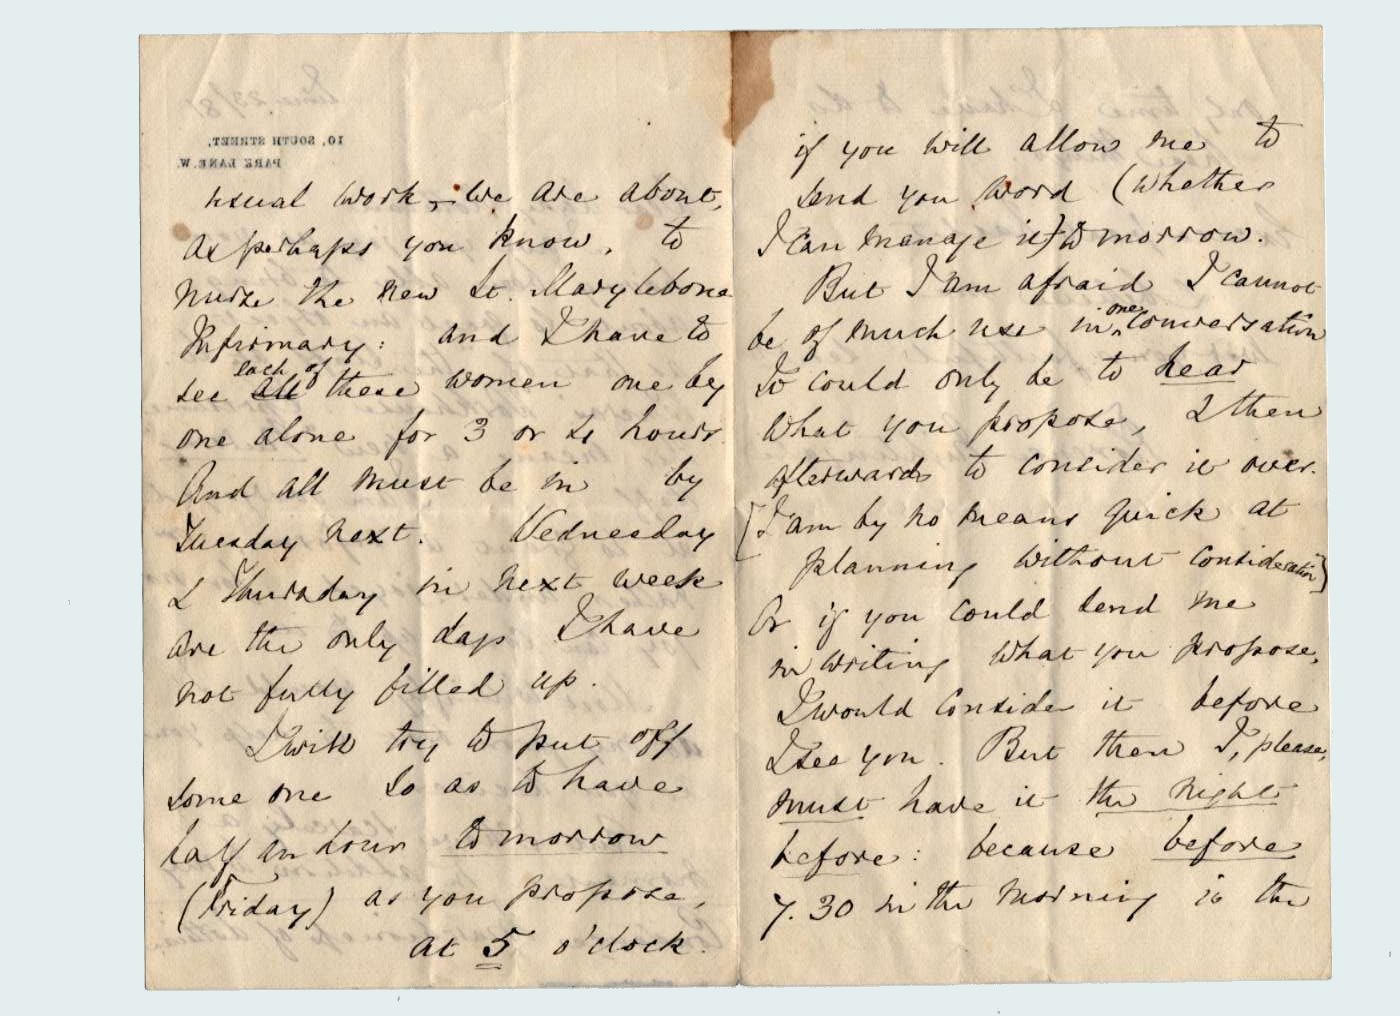 usual work – We are about,
as perhaps you know, to
nurse the new St. Marylebone
Infirmary: and I have to
see all each of these women one by
one alone for 3 or 4 hours
And all must be in by
Tuesday next. Wednesday
& Thursday in next week
are the only days I have
not fully filled up.
I will try to put off
some one so as to have
half an hour tomorrow
(Friday) as you propose,
at 5 o'clock.
if you will allow me to
send you word (whether
I can manage it) tomorrow.
But I am afraid I cannot
be of much use in one conversation
It could only be to hear
what you propose, & then
afterwards to consider it over.
[I am by no means quick at
planning without consideration]
Or if you could send me
in writing what you propose,
I would consider it before
I see you. But then I, please,
must have it the night
before: because before
7.30 in the morning is the
10, SOUTH STREET,
PARK LANE. W.
June 23/81